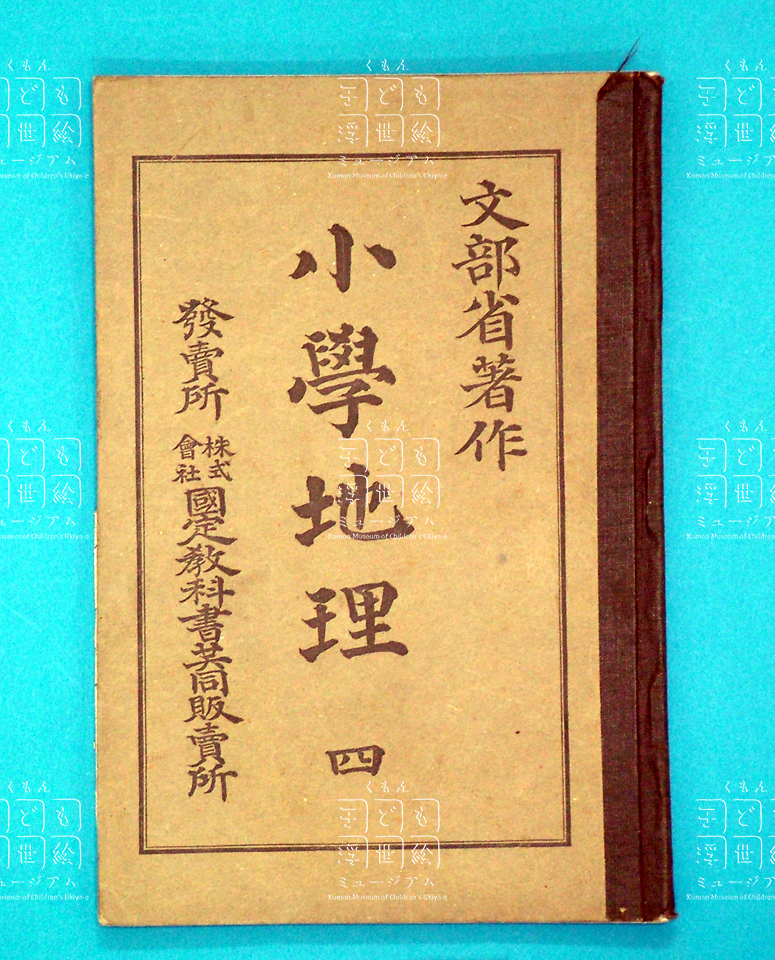 文部省著作
小學地理 四
發賣所 株式會社 國定教科書共同販賣所
くもん
子ども
浮世絵
ミュージアム
Kumon Museum of Children's Ukiyo-e